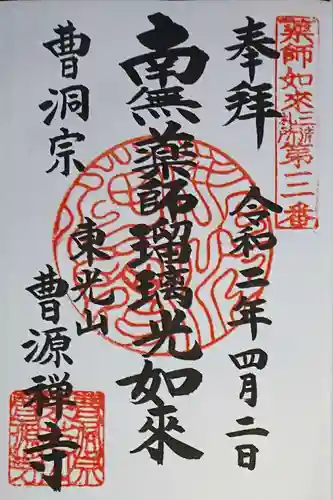 薬師如来三遠札所第三番
奉拝
令和二年四月二日
南無薬師瑠璃光如来
曹洞宗
東光山
曹源禅寺